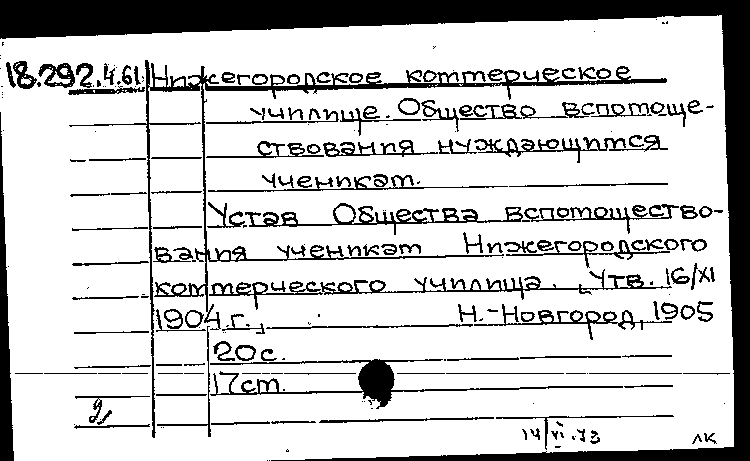 18.292.4.61 Нижегородское коммерческое
училище. Общество вспомоще-
ствования нуждающимся
ученикам.
Устав Общества вспомощество-
вания ученикам Нижегородского
коммерческого училища. [Утв. 16/XI
1904 г.] Н.-Новгород, 1905
20 с.
17 см.
2
14/VI.73
ЛК